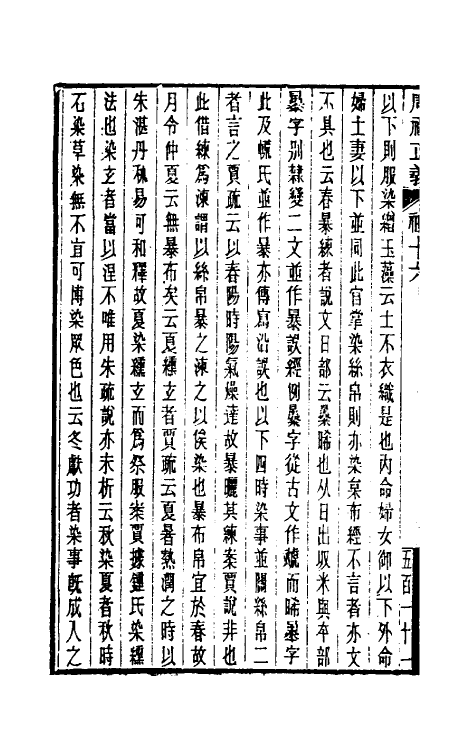 周禮正義 卷十六 五百一十一
以下則服染繒玉藻云士不衣織是也內命婦女御以下外命
婦士妻以下並同此官掌染絲帛則亦染枲布經不言者亦文
不具也云春暴練者說文日部云㬥晞也从日出収米與夲部
㬥字別隸變二文並作暴誤經例㬥字從古文作䟫而晞㬥字
此及㡛氏並作暴亦傳寫沿誤也以下四時染事並關絲帛二
者言之賈疏云以春陽時陽氣燥達故暴曬其練案賈說非也
此借練為湅謂以絲帛暴之湅之以俟染也暴布帛宜於春故
月令仲夏云無暴布矣云夏纁玄者賈疏云夏暑熱潤之時以
朱湛丹秫易可和釋故夏染纁玄而為祭服案賈據鍾氏染纁
法也染玄者當以涅不唯用朱疏說亦未析云秋染夏者秋時
石染草染無不宜可博染眾色也云冬獻功者染事既成入之